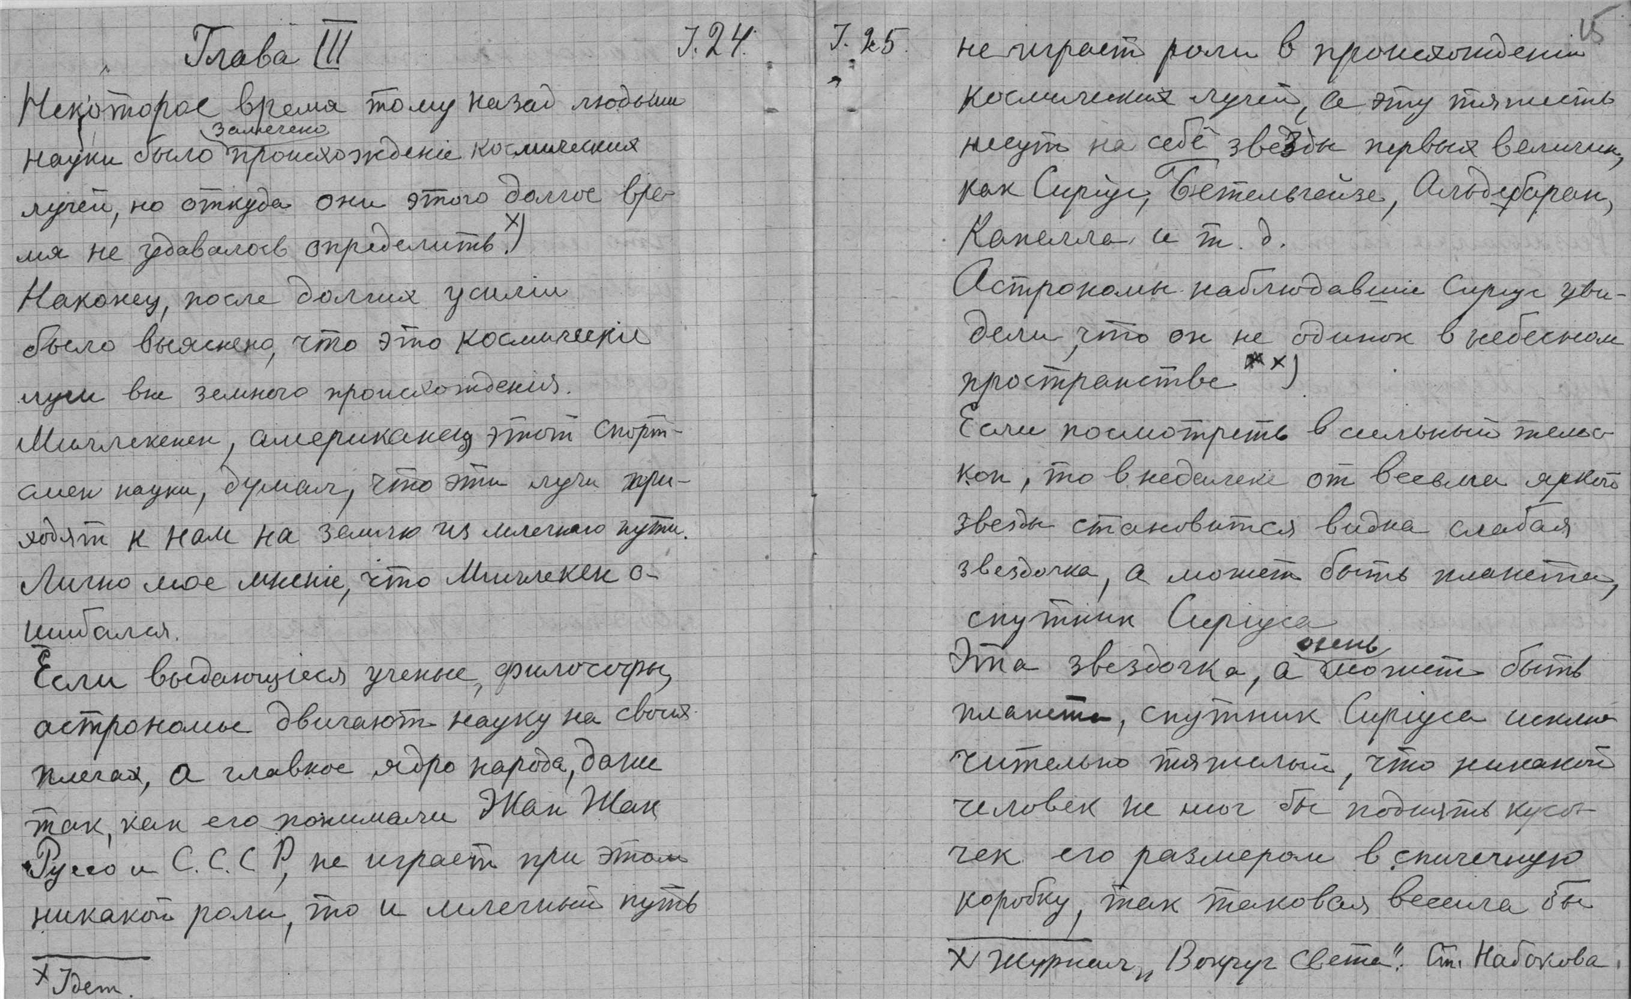 Глава III
I.24.
Некоторое время тому назад людьми
замечено
науки было происхожденіе космических
лучей, но откуда они этого долгое вре-
мя не удавалось определить x)
Наконец, после долгих усилiи
было выяснено, что это космическіе
лучи вне земного происхождения.
Милликенен, американец этот спорт-
смен науки, думал, что эти лучи при-
ходят к нам на землю из млечного пути.
Лично мое мненіе, что Милликен о-
шибался.
Если выдающіеся ученые, философы,
астрономы двигают науку на своих
плечах, а главное ядро народа, даже
так, как его понимали Жан Жак
Руссо и С.С.С Р, не играет при этом
никакой роли, то и млечный путь
x Idem.
I. 25.
15
не играет роли в происхожденіи
космических лучей, а эту тяжесть
несут на себе звезды первых величин,
как Сиріус, Бетельгейзе, Альдебаран,
Капелла и т. д.
Астрономы наблюдавшіе Сиріус уви-
дели, что он не одинок в небесном
пространстве xx)
Если посмотреть в сильный телес-
коп, то в недалеке от весьма яркой
звезды становится видна слабая
звездочка, а может быть планета,
спутник Сиріуса
очень
Эта звездочка, а может быть
планета, спутник Сиріуса исклю-
чительно тяжелый, что никакой
человек не мог бы поднять кусо-
чек его размером в спичечную
коробку, так таковая весила бы
x Журнал „Вокруг Света". Ст. Набокова.